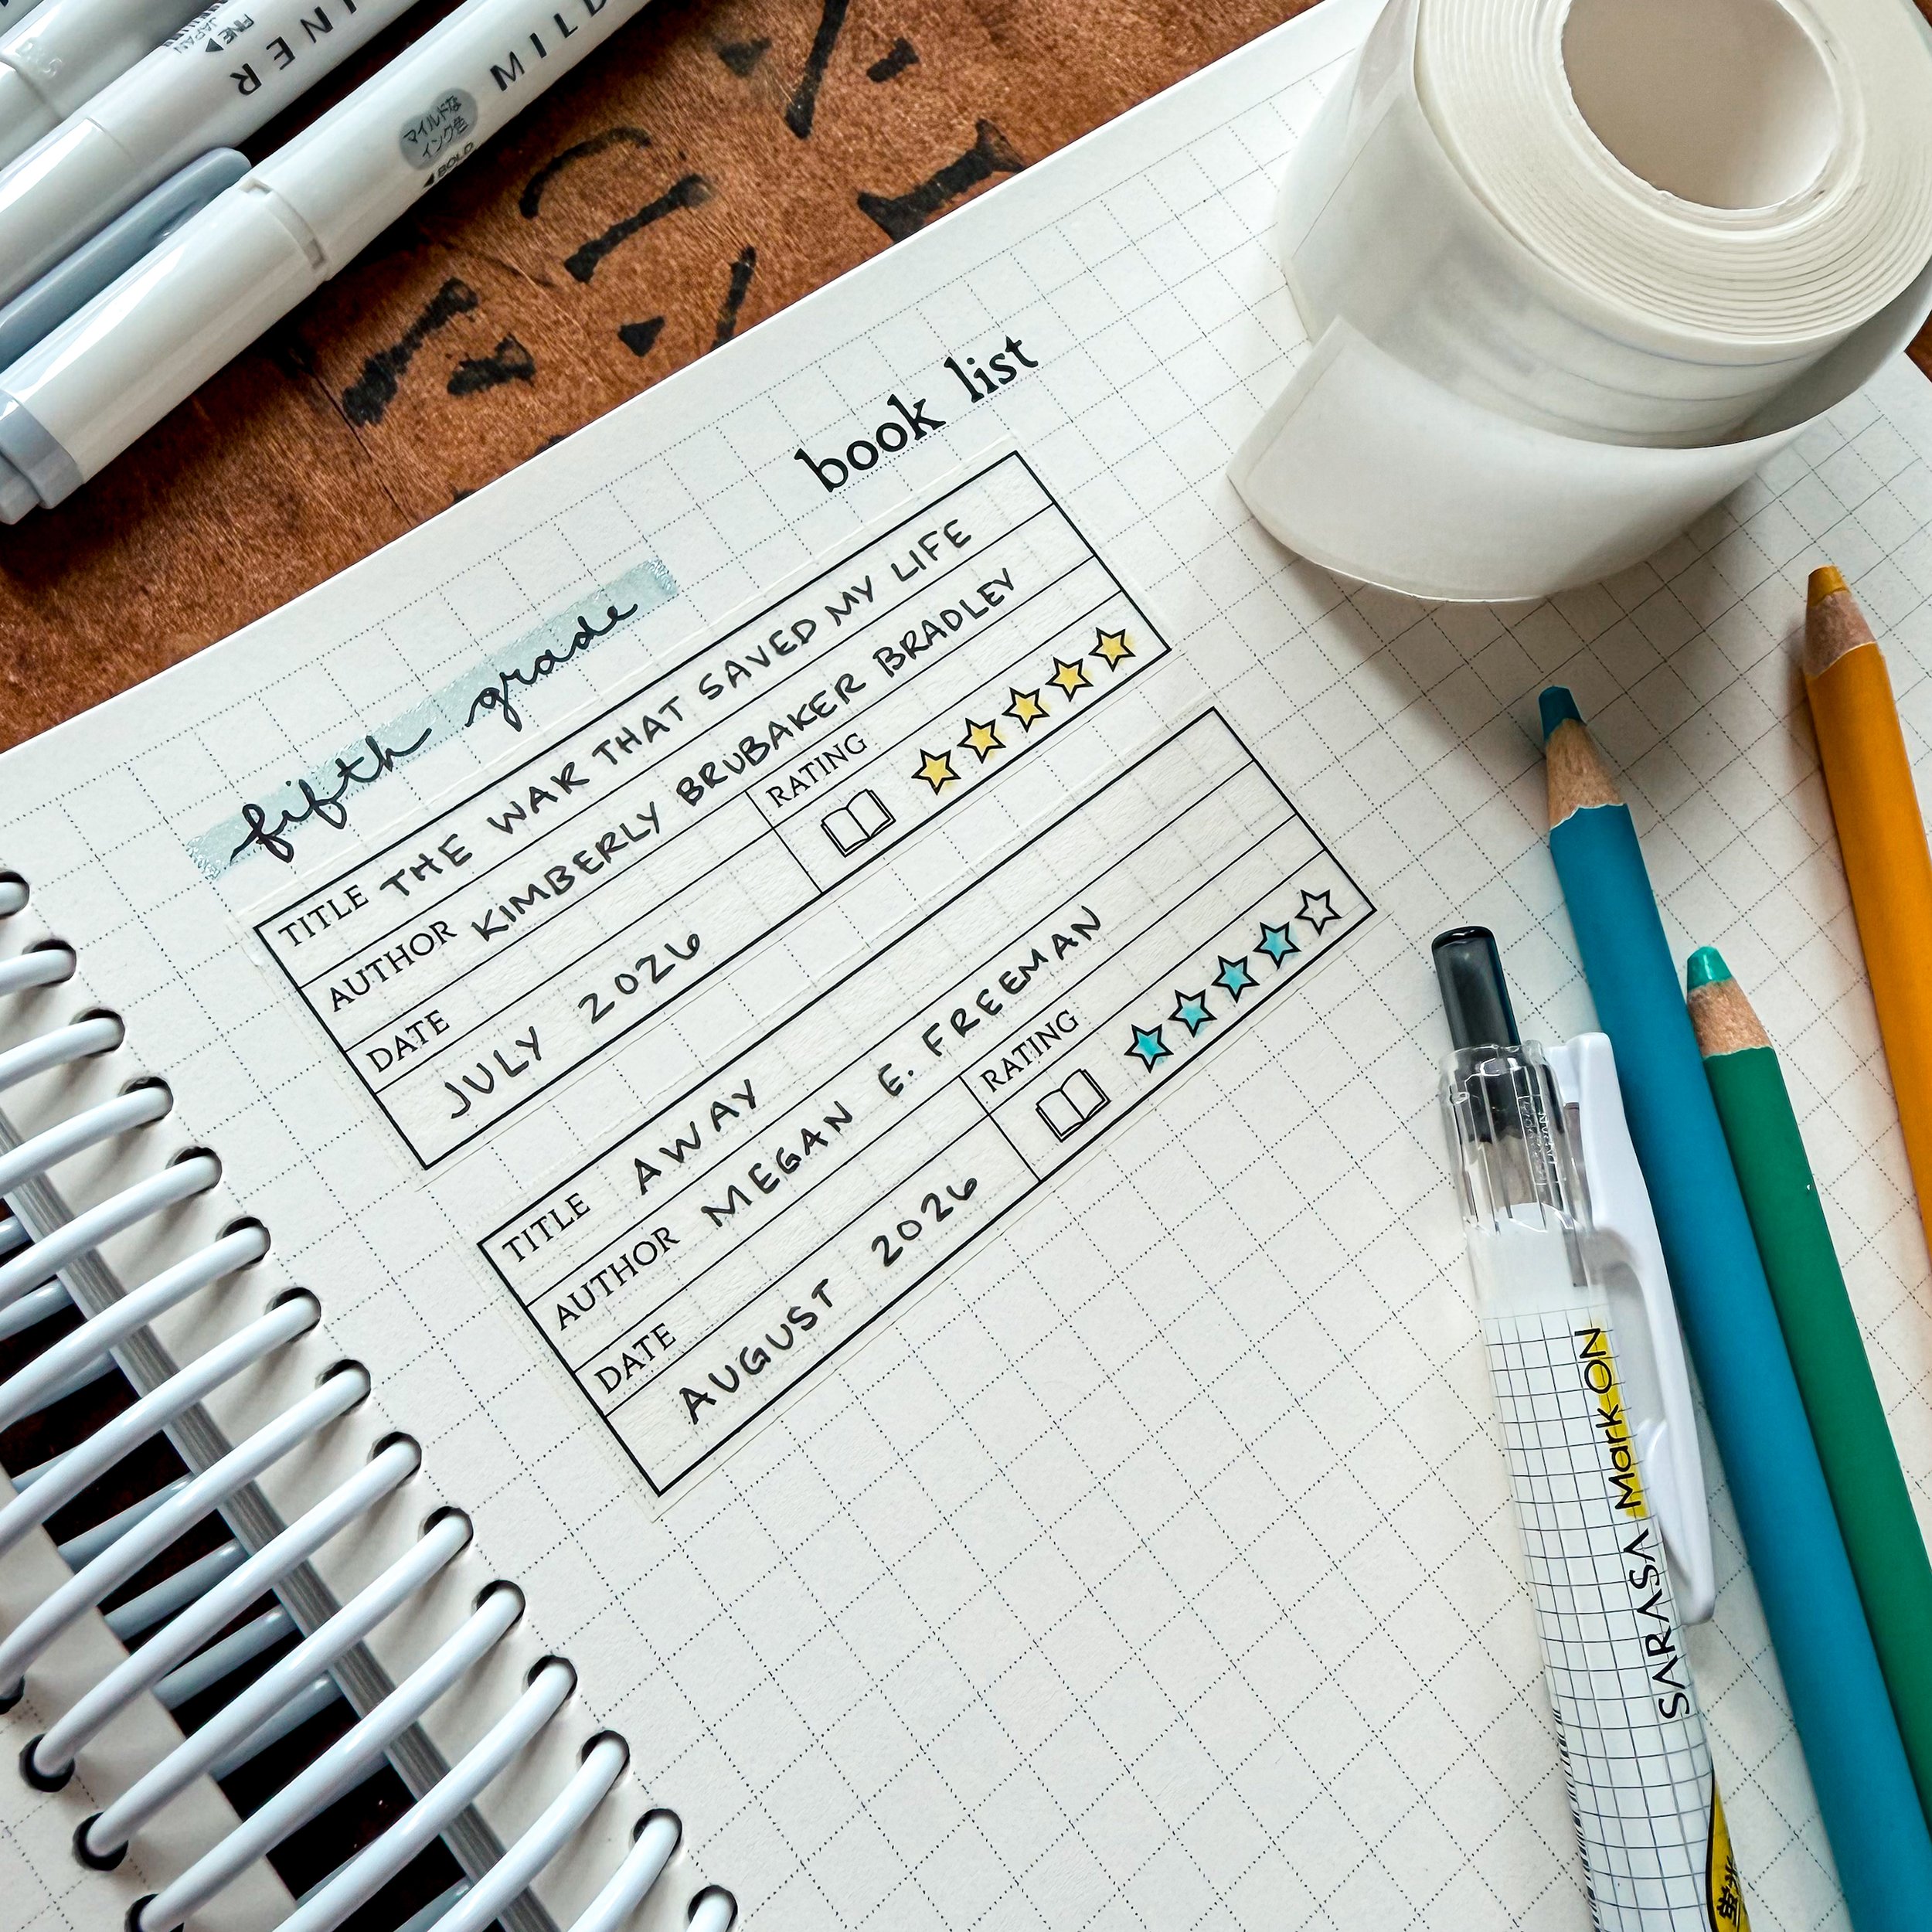 FINE
JAPAN
INER
MILD
マイルドな
インク色
BOLD
book list
fifth grade
TITLE THE WAR THAT SAVED MY LIFE
AUTHOR KIMBERLY BRUBAKER BRADLEY
DATE RATING
JULY 2026
TITLE AWAY
AUTHOR MEGAN E. FREEMAN
DATE RATING
AUGUST 2026
SARASA Mark ON